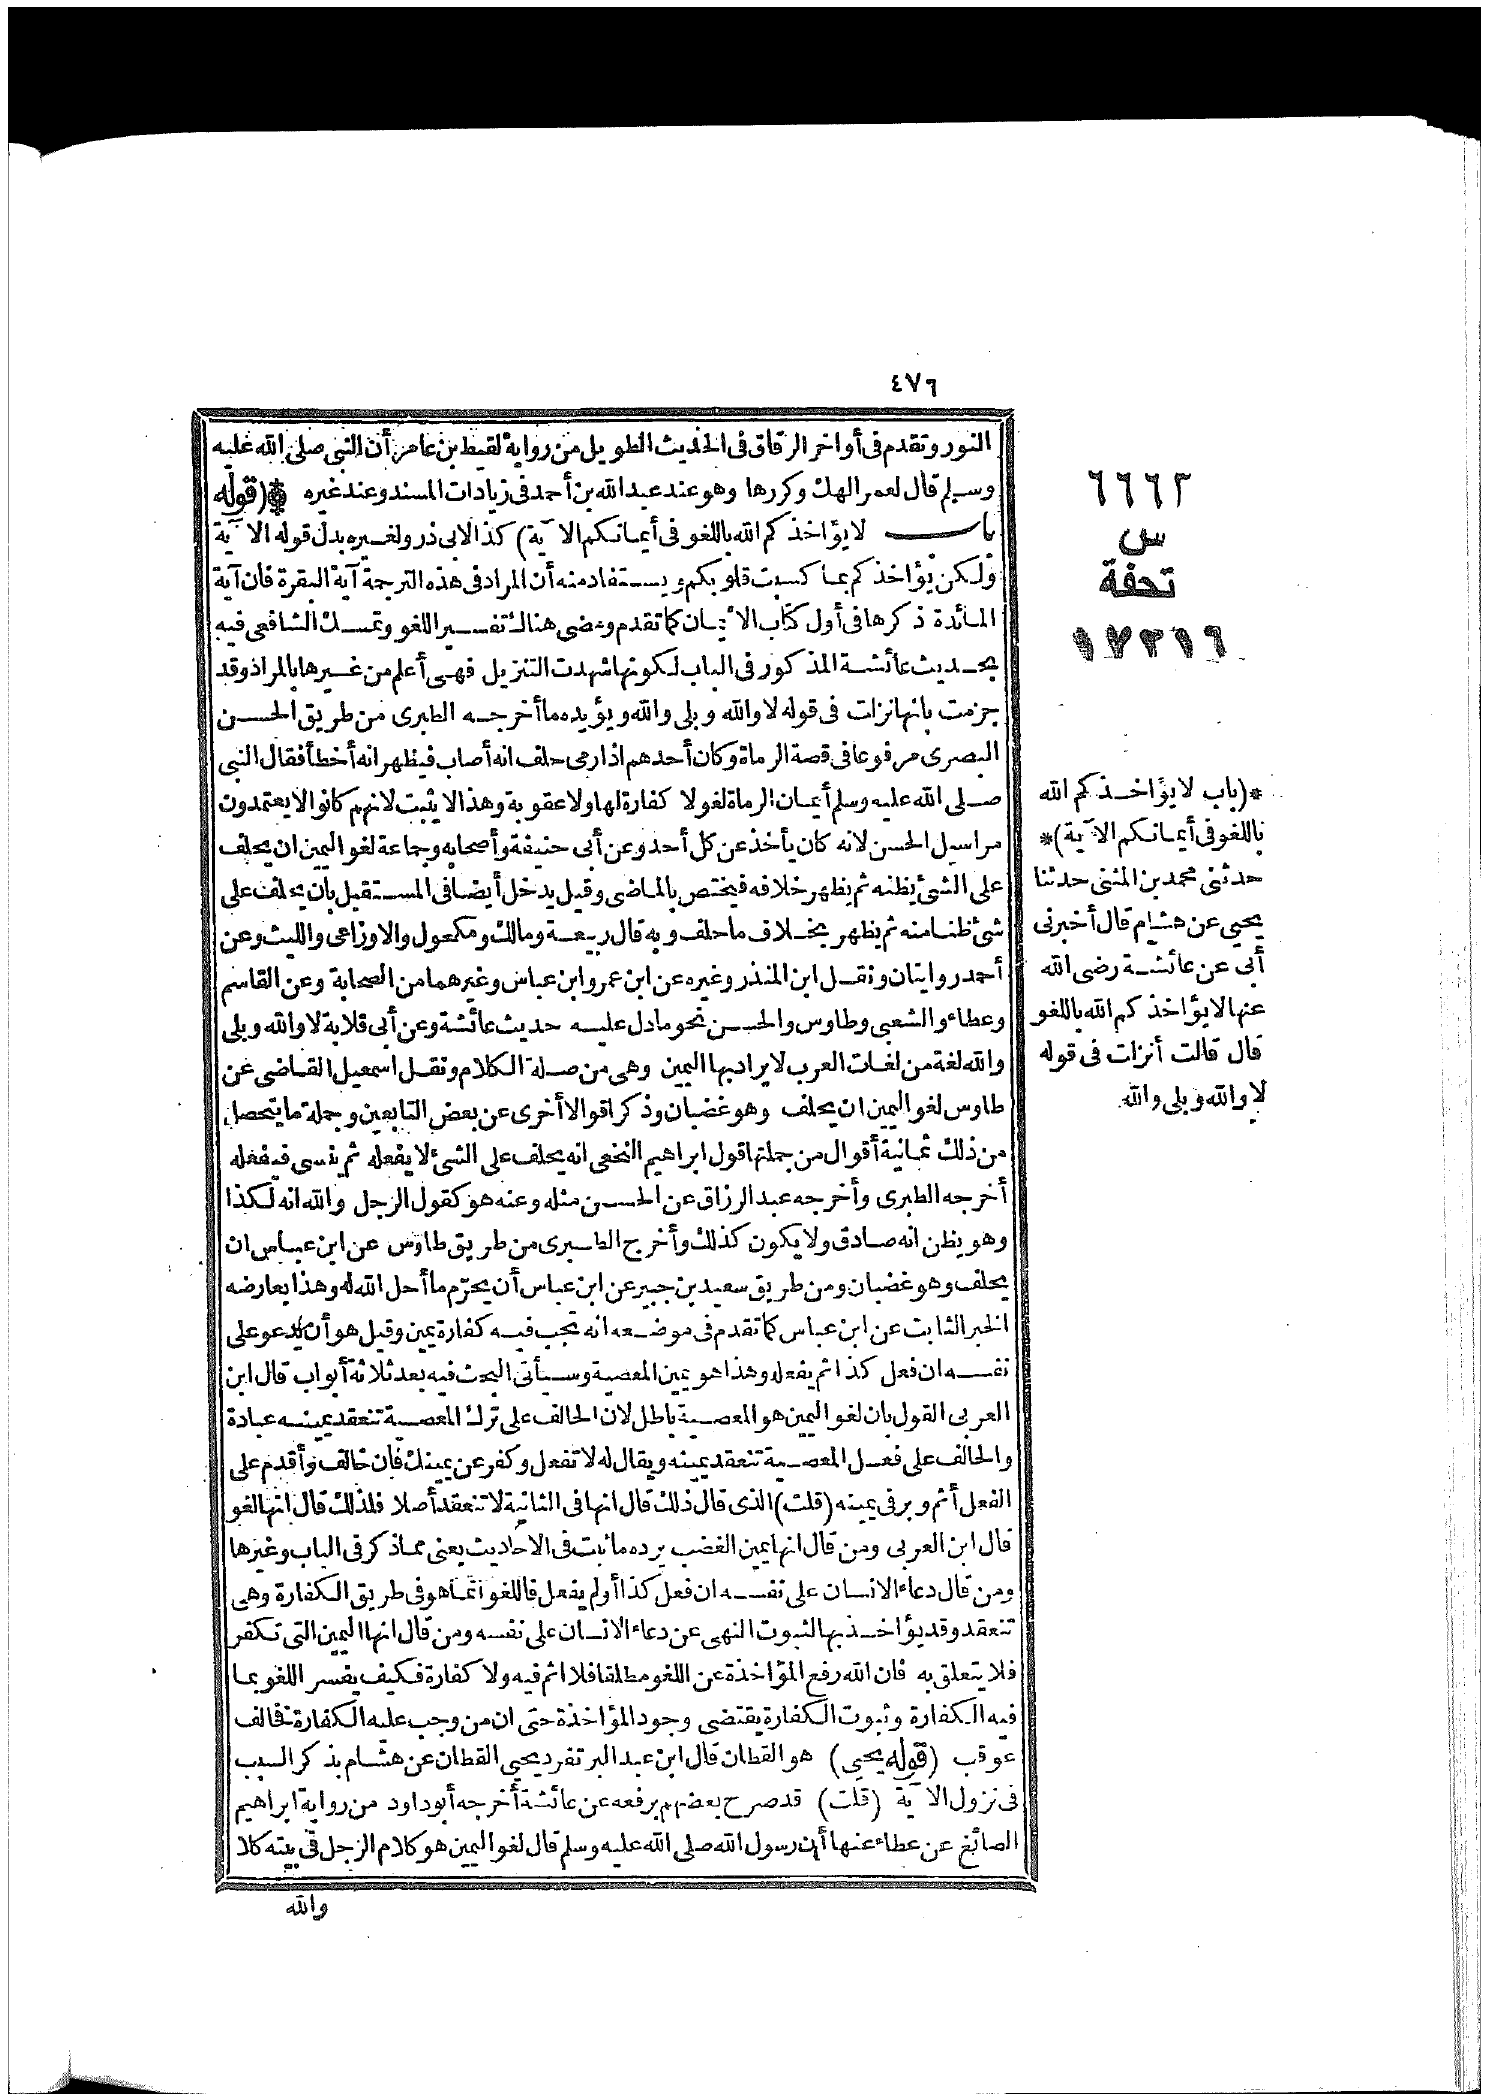 ٤٧٦
النور وتقدم فى أواخر الرقاق فى الحديث الطويل من رواية لقيط بن عامر أن النبى صلى الله عليه
وسلم قال لعمر الهك وكررها وهو عند عبد الله بن أحمد فى زيادات المسند وعند غيره * (قوله
باب لا يؤاخذ كم الله باللغو فى أيمانكم الآية) كذا لابى ذر ولغيره بدل قوله الآية
ولكن يؤاخذ كم بما كسبت قلوبكم ويستفاد منه أن المراد فى هذه الترجمة آية البقرة فان آية
المائدة ذكرها فى أول كتاب الايمان كما تقدم ومضى هناك تفسير اللغو وتمسك الشافعى فيه
بحديث عائشة المذكور فى الباب لكونها شهدت التنزيل فهى أعلم من غيرها بالمراد وقد
جزمت بانها نزلت فى قوله لا والله وبلى والله ويؤيده ما أخرجه الطبرى من طريق الحسن
البصرى مرفوعا فى قصة الرماة وكان أحدهم اذا رمى حلف انه أصاب فيظهر انه أخطأ فقال النبى
صلى الله عليه وسلم أيمان الرماة لغو لا كفارة لها ولا عقوبة وهذا لا يثبت لانهم كانوا لا يعتمدون
مراسيل الحسن لانه كان يأخذ عن كل أحد وعن أبى حنيفة وأصحابه وجماعة لغو اليمين ان يحلف
على الشئ يظنه ثم يظهر خلافه فيختص بالماضى وقيل يدخل أيضا فى المستقبل بان يحلف على
شئ ظنا منه ثم يظهر بخلاف ما حلف وبه قال ربيعة ومالك ومكحول والاوزاعى والليث وعن
أحمد روايتان ونقل ابن المنذر وغيره عن ابن عمر وابن عباس وغيرهما من الصحابة وعن القاسم
وعطاء والشعبى وطاوس والحسن نحو ما دل عليه حديث عائشة وعن أبى قلابة لا والله وبلى
والله لغة من لغات العرب لا يراد بها اليمين وهى من صلة الكلام ونقل اسمعيل القاضى عن
طاوس لغو اليمين ان يحلف وهو غضبان وذكر اقوالا أخرى عن بعض التابعين وجملة ما يتحصل
من ذلك ثمانية أقوال من جملتها قول ابراهيم النخعى انه يحلف على الشئ لا يفعله ثم ينسى فيفعله
أخرجه الطبرى وأخرجه عبد الرزاق عن الحسن مثله وعنه هو كقول الرجل والله انه لكذا
وهو يظن انه صادق ولا يكون كذلك وأخرج الطبرى من طريق طاوس عن ابن عباس ان
يحلف وهو غضبان ومن طريق سعيد بن جبير عن ابن عباس أن يحرّم ما أحل الله له وهذا يعارضه
الخبر الثابت عن ابن عباس كما تقدم فى موضعه انه تجب فيه كفارة يمين وقيل هو أن يدعو على
نفسه ان فعل كذا ثم يفعله وهذا هو يمين المعصية وسيأتى البحث فيه بعد ثلاثة أبواب قال ابن
العربى القول بان لغو اليمين هو المعصية باطل لان الحالف على ترك المعصية تنعقد يمينه عبادة
والحالف على فعل المعصية تنعقد يمينه ويقال له لا تفعل وكفر عن يمينك فان خالف وأقدم على
الفعل أثم وبر فى يمينه (قلت) الذى قال ذلك قال انها فى الثانية لا تنعقد أصلا فلذلك قال انها لغو
قال ابن العربى ومن قال انها يمين الغضب يرده ما ثبت فى الاحاديث يعنى مما ذكر فى الباب وغيرها
ومن قال دعاء الانسان على نفسه ان فعل كذا أو لم يفعل فاللغو انما هو فى طريق الكفارة وهى
تنعقد وقد يؤاخذ بها لثبوت النهى عن دعاء الانسان على نفسه ومن قال انها اليمين التى تكفر
فلا يتعلق به فان الله رفع المؤاخذة عن اللغو مطلقا فلا اثم فيه ولا كفارة فكيف يفسر اللغو بما
فيه الكفارة وثبوت الكفارة يقتضى وجود المؤاخذة حتى ان من وجب عليه الكفارة فخالف
عوقب (قوله يحيى) هو القطان قال ابن عبد البر تفرد يحيى القطان عن هشام بذكر السبب
فى نزول الآية (قلت) قد صرح بعضهم برفعه عن عائشة أخرجه أبو داود من رواية ابراهيم
الصائغ عن عطاء عنها أن رسول الله صلى الله عليه وسلم قال لغو اليمين هو كلام الرجل فى بيته كلا
والله
٦٦٦٣
س
تحفة
١٧٣١٦
*(باب لا يؤاخذ كم الله
باللغو فى أيمانكم الآية)*
حدثنى محمد بن المثنى حدثنا
يحيى عن هشام قال أخبرنى
أبى عن عائشة رضى الله
عنها لا يؤاخذ كم الله باللغو
قال قالت أنزلت فى قوله
لا والله وبلى والله